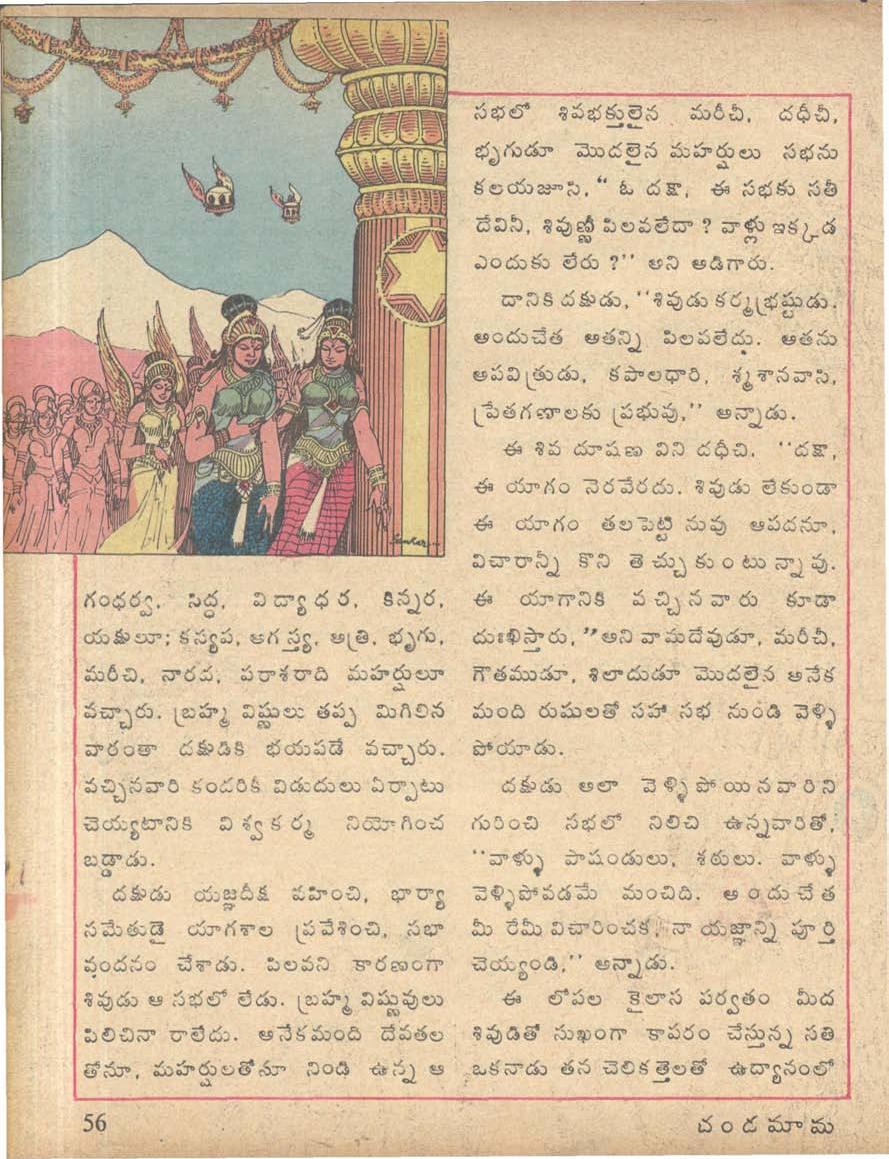 గంధర్వ, సిద్ధ, విద్యాధర, కిన్నర,
యక్షులూ; కస్యప, అగస్త్య, అత్రి, భృగు,
మరీచి, నారద, పరాశరాది మహర్షులూ
వచ్చారు. బ్రహ్మ విష్ణులు తప్ప మిగిలిన
వారంతా దక్షుడికి భయపడే వచ్చారు.
వచ్చినవారి కందరికీ విడుదులు ఏర్పాటు
చెయ్యటానికి విశ్వకర్మ నియోగించ
బడ్డాడు.
దక్షుడు యజ్ఞదీక్ష వహించి, భార్యా
సమేతుడై యాగశాల ప్రవేశించి, సభా
వందనం చేశాడు. పిలవని కారణంగా
శివుడు ఆ సభలో లేడు. బ్రహ్మ విష్ణువులు
పిలిచినా రాలేదు. అనేకమంది దేవతల
తోనూ, మహర్షులతోనూ నిండి ఉన్న ఆ
సభలో శివభక్తులైన మరీచీ, దధీచీ,
భృగుడూ మొదలైన మహర్షులు సభను
కలయజూసి, "ఓ దక్షా, ఈ సభకు సతీ
దేవినీ, శివుణ్ణీ పిలవలేదా? వాళ్లు ఇక్కడ
ఎందుకు లేరు?" అని అడిగారు.
దానికి దక్షుడు, "శివుడు కర్మభ్రష్టుడు.
అందుచేత అతన్ని పిలపలేదు. అతను
అపవిత్రుడు, కపాలధారి, శ్మశానవాసి,
ప్రేతగణాలకు ప్రభువు," అన్నాడు.
ఈ శివ దూషణ విని దధీచి. "దక్షా,
ఈ యాగం నెరవేరదు. శివుడు లేకుండా
ఈ యాగం తలపెట్టి నువు ఆపదనూ,
విచారాన్నీ కొని తెచ్చుకుంటున్నావు.
ఈ యాగానికి వచ్చినవారు కూడా
దుఃఖిస్తారు," అని వామదేవుడూ, మరీచీ,
గౌతముడూ, శిలాదుడూ మొదలైన అనేక
మంది రుషులతో సహా సభ నుండి వెళ్ళి
పోయాడు.
దక్షుడు అలా వెళ్ళిపోయినవారిని
గురించి సభలో నిలిచి ఉన్నవారితో,
"వాళ్ళు పాషండులు, శఠులు. వాళ్ళు
వెళ్ళిపోవడమే మంచిది. అందుచేత
మీ రేమీ విచారించక, నా యజ్ఞాన్ని పూర్తి
చెయ్యండి," అన్నాడు.
ఈ లోపల కైలాస పర్వతం మీద
శివుడితో సుఖంగా కాపరం చేస్తున్న సతి
ఒకనాడు తన చెలికత్తెలతో ఉద్యానంలో
56
చందమామ
Sankar...